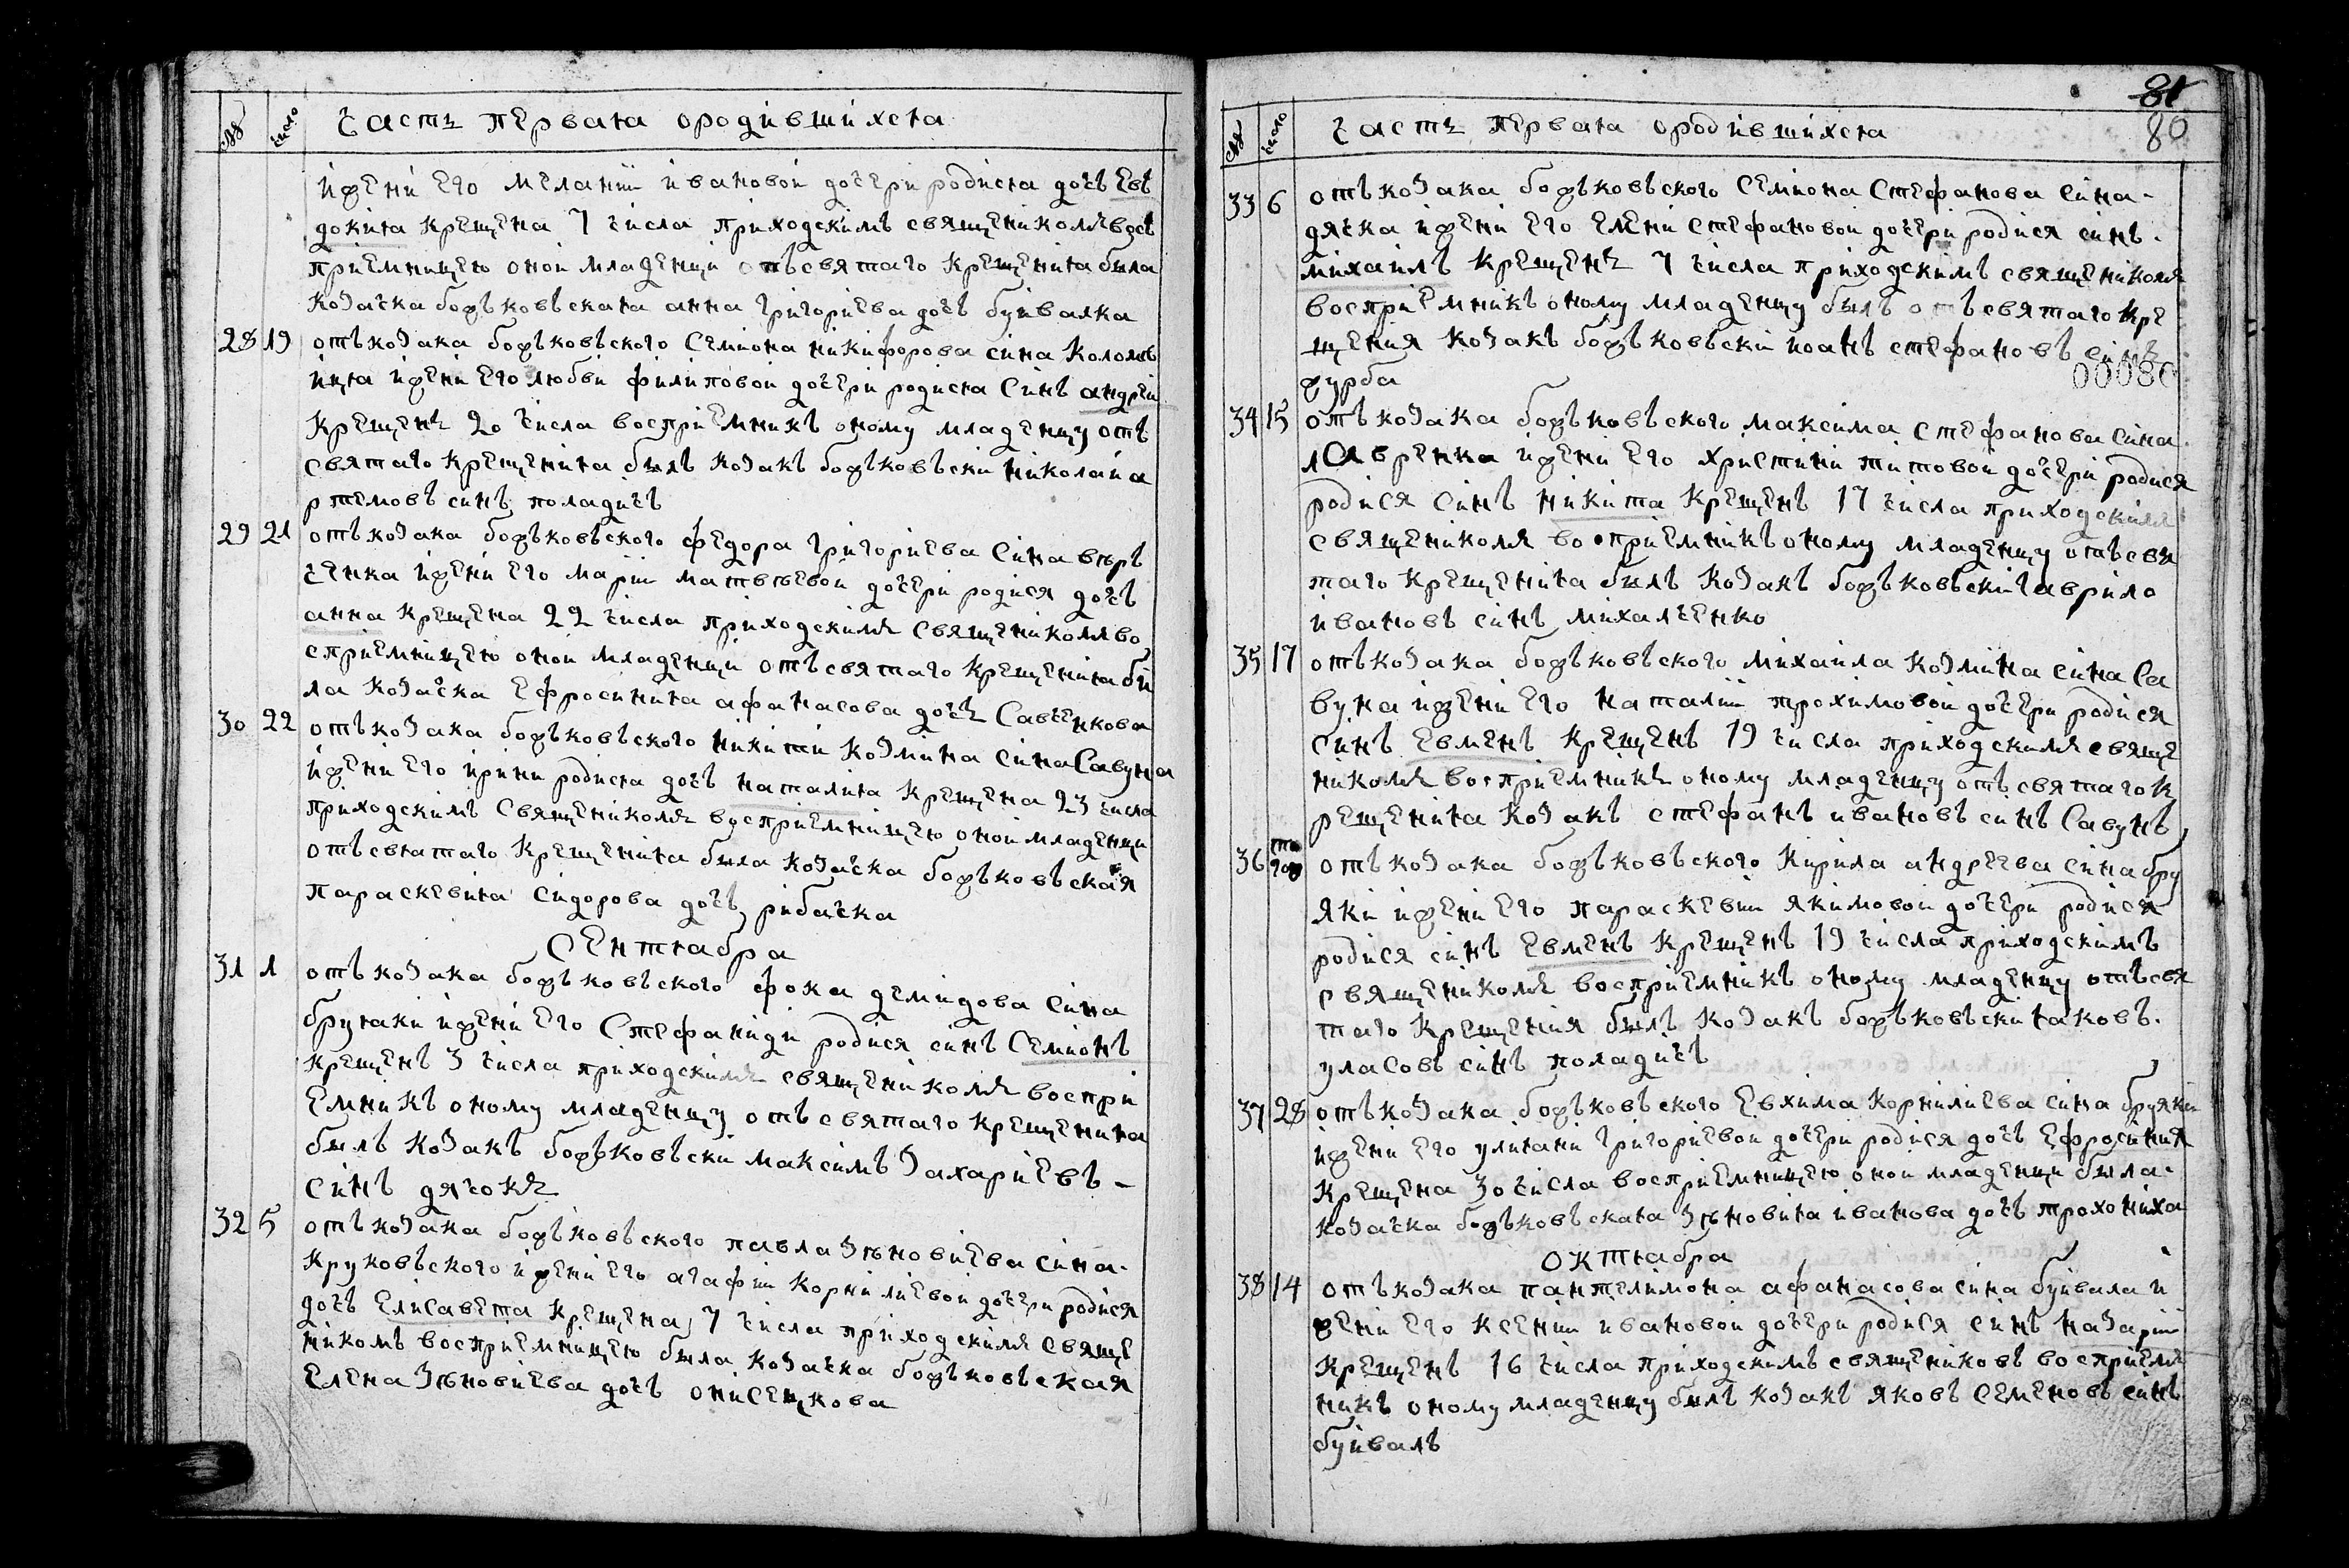 № число Часть первая ородившихся
ижени его меланіи ивановой дочери родися дочъ Евъ
докия крещена 7 числа приходскимъ священикомъ восъ
приемницею оной младенци отъ святаго крещения была
козачка божъковъская анна григориева дочъ буйвалка
28 19 отъ козака божъковъского семиона никифорова сина коломъ
ийца ижени его любви филиповой дочери родися синъ андрей
крещенъ 20 числа восприемникъ оному младенцу отъ
святаго крещения былъ козакъ божъковъски николай а
ртемовъ синъ поладичъ
29 21 отъ козака божъковъского федора григориева сина вѣръ
ченка ижени его маріи матвѣевой дочери родися дочъ
анна крещена 22 числа приходскимъ священикомъ во
сприемницею оной младенци отъ святаго крещения би
ла козачка ефросиния афанасова дочъ савченкова
30 22 отъ козака божъковъского никити козмина сина савуна
ижени его ирини родися дочъ наталия крещена 23 числа
приходскимъ священикомъ восприемницею оной младенци
отъ святаго крещения была козачка божъковъская
параскевия сидорова дочъ рибачка
сентября
31 1 отъ козака божъковъского фока демидова сина
бруяки ижени его стефаниди родися синъ семионъ
крещенъ 3 числа приходскимъ священикомъ воспри
емникъ оному младенцу отъ святаго крещения
былъ козакъ божъковъски максимъ захариевъ -
синъ дячокъ
32 5 отъ козака божъковъского павла зѣновиева сина -
круковъского ижени его агафіи корнилиевой дочери родися
дочъ елисавета крещена 7 числа приходскимъ свяще
никомъ восприемницею была козачка божъковъская
елена зѣновиева дочъ онисенкова
81
80
№ число Часть первая ородившихся
33 6 отъ козака божъковъского семиона стефанова сина -
дячка ижени его елени стефановой дочери родися синъ -
михаилъ крещенъ 7 числа приходскимъ священикомъ
восприемникъ оному младенцу былъ отъ святаго кре
щения козакъ божъковъски иоанъ стефановъ синъ
журба
00080
34 15 отъ козака божъковъского максима стефанова сина
лавренка ижени его христини титовой дочери родися
родися синъ никита крещенъ 17 числа приходскимъ
священикомъ восприемникъ оному младенцу отъ свя
таго крещения былъ козакъ божъковъски гаврило
ивановъ синъ михалченко
35 17 отъ козака божъковъского михаила козмина сина са
вуна ижени его наталіи трохимовой дочери родися
синъ евменъ крещенъ 19 числа приходскимъ свяще
никомъ восприемникъ оному младенцу отъ святаго к
рещения козакъ стефанъ ивановъ синъ савунъ
36 отъ козака божъковъского кирила андреева сина бру
яки ижени его параскевіи якимовой дочери родися
родися синъ евменъ крещенъ 19 числа приходскимъ
священикомъ восприемникъ оному младенцу отъ свя
таго крещения былъ козакъ божъковъски яковъ -
уласовъ синъ поладичъ
37 28 отъ козака божъковъского евхима корнилиева сина бруяки
ижени его улияни григориевой дочери родися дочъ ефросиния
крещена 30 числа восприемницею оной младенци была -
козачка божъковъская зѣновия иванова дочъ трохониха
октября
38 14 отъ козака пантелимона афанасова сина буйвала и
жени его ксеніи ивановой дочери родися синъ назарій
крещенъ 16 числа приходскимъ священиковъ восприем
никъ оному младенцу былъ козакъ яковъ семеновъ синъ
буйвалъ